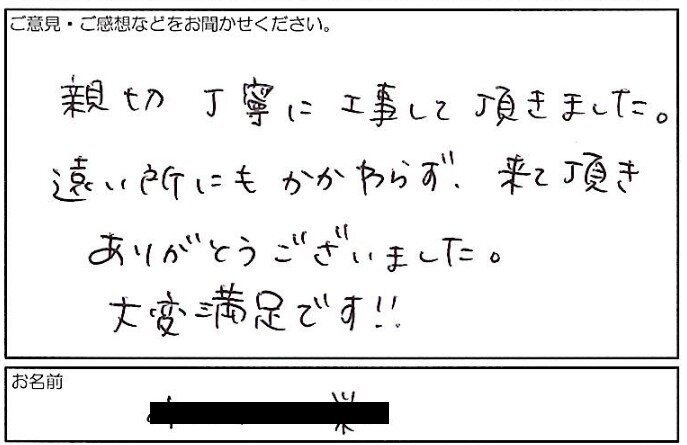 ご意見・ご感想などをお聞かせください。
親切 丁寧に 工事して 頂きました。
遠い所にも かかわらず、来て頂き
ありがとうございました。
大変満足です!!
お名前